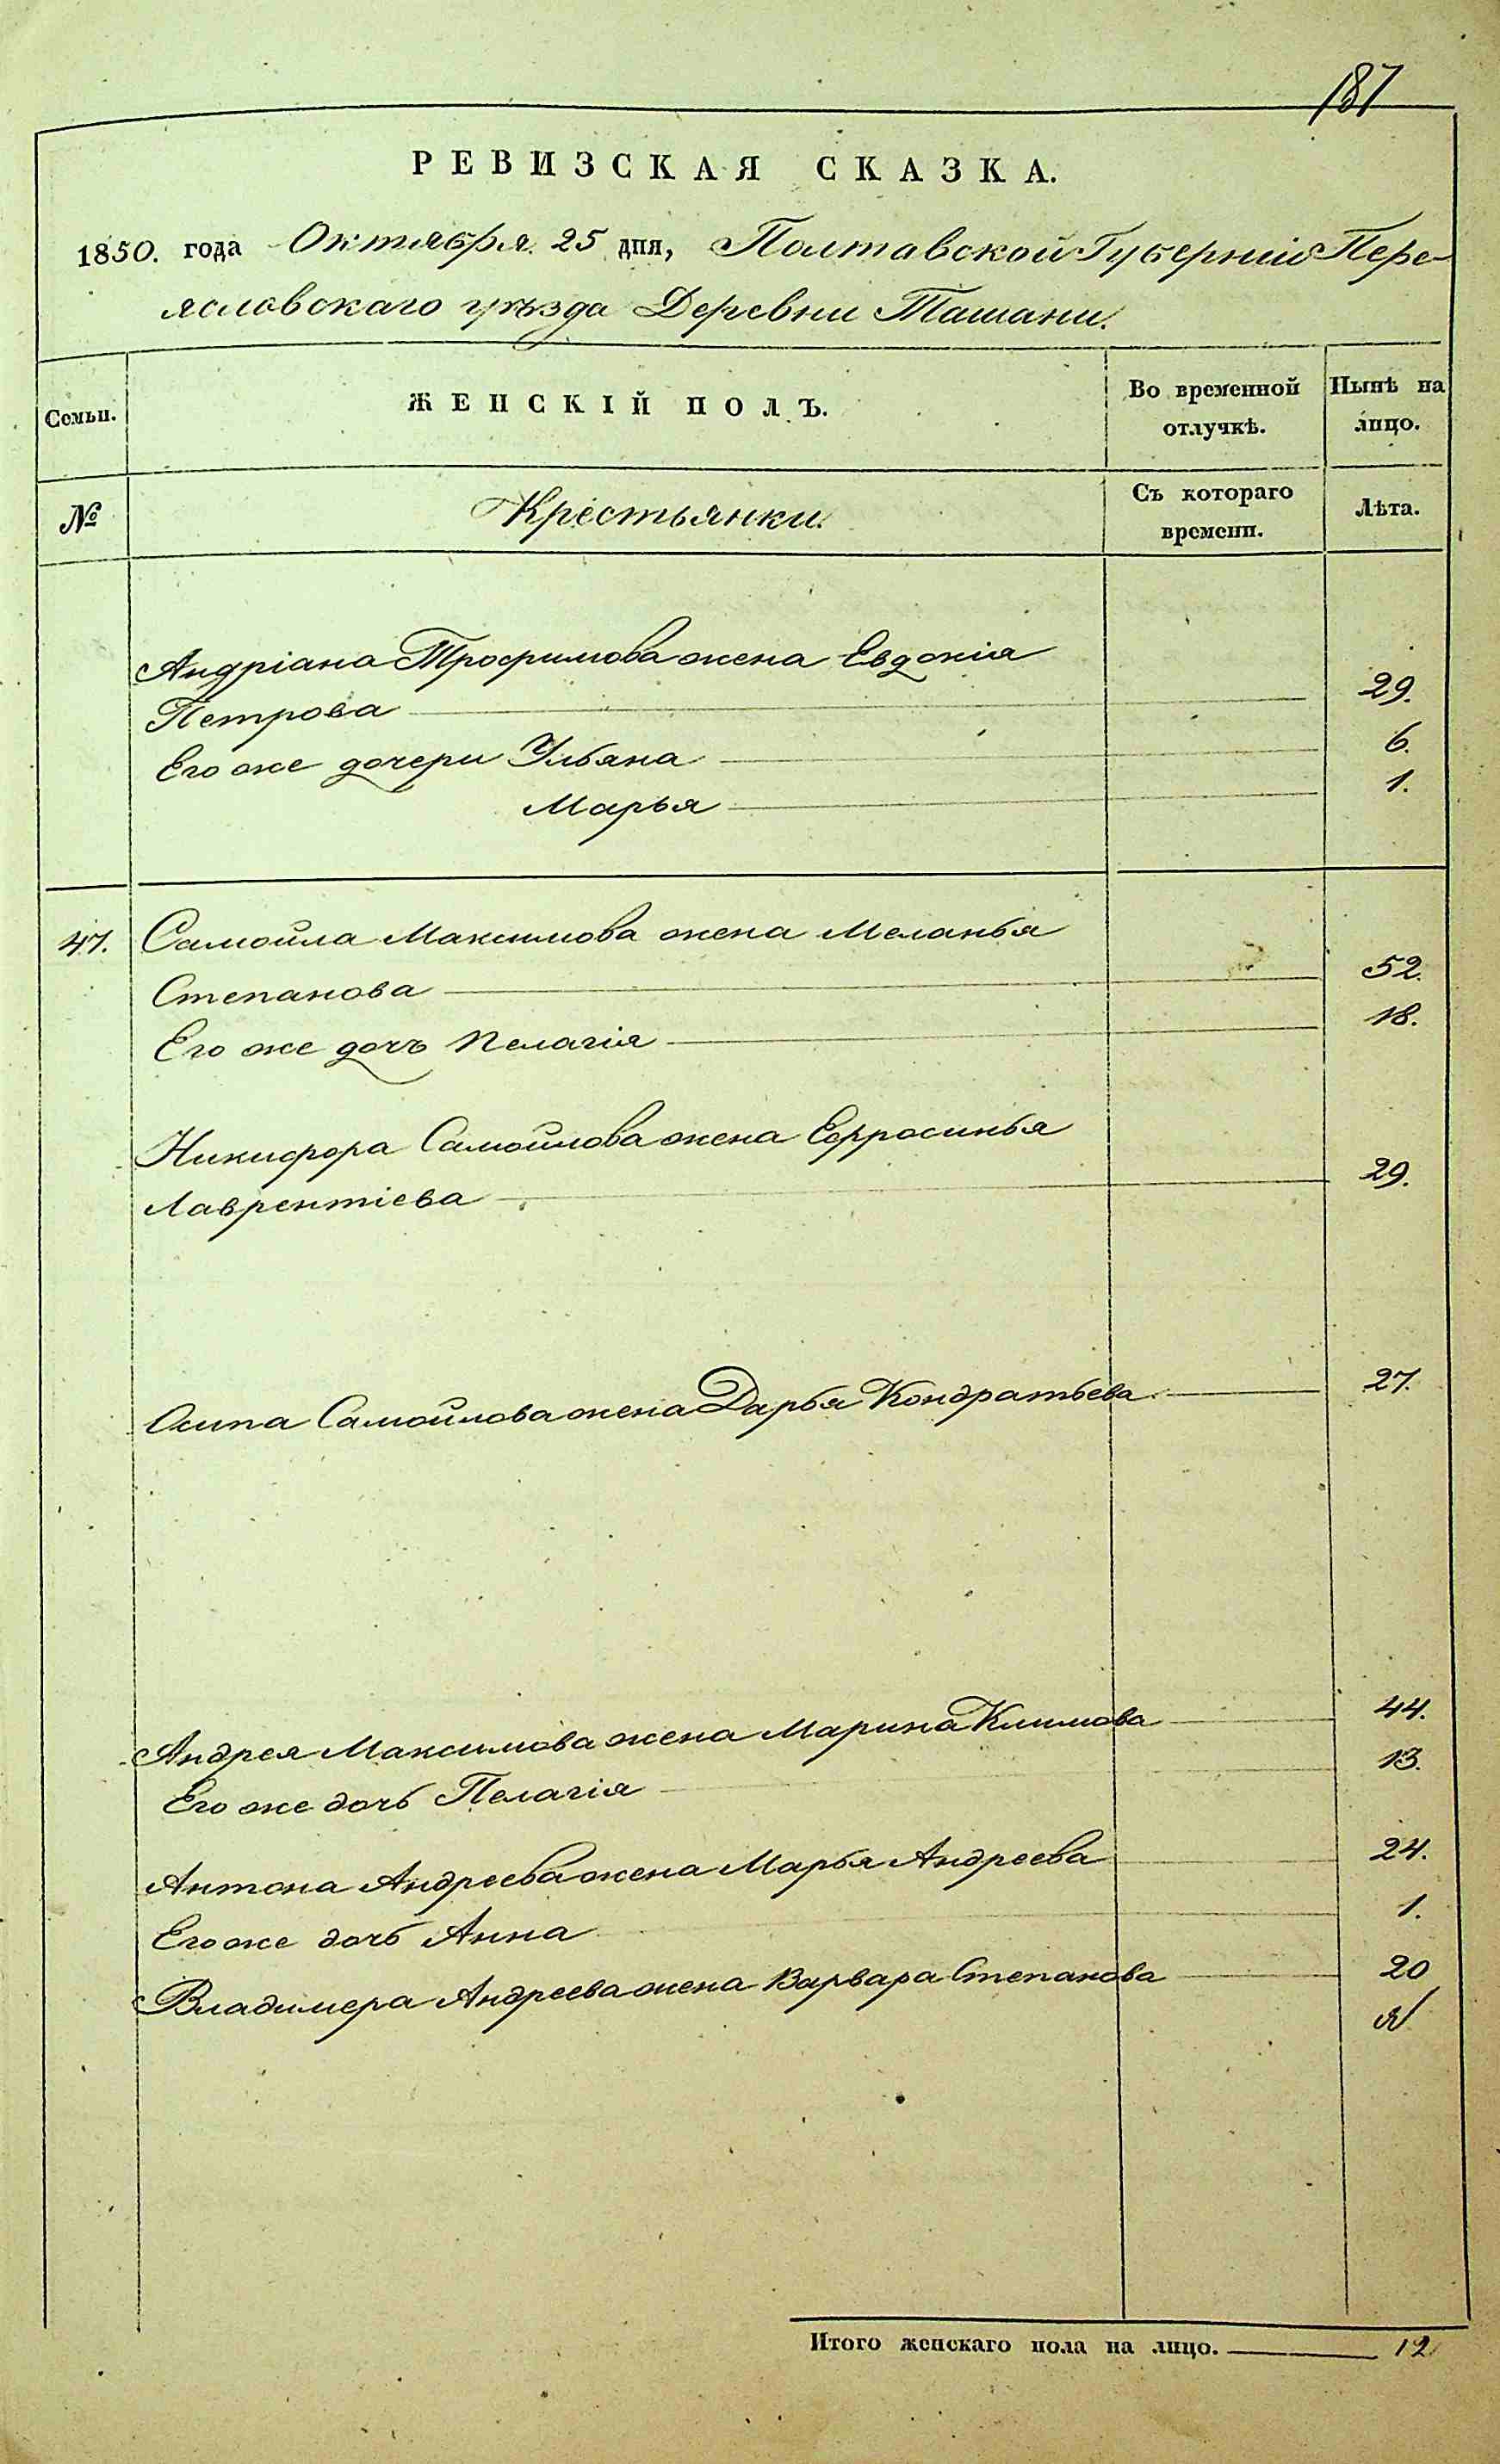 187
РЕВИЗСКАЯ СКАЗКА.
1850. года Октября 25 дня, Полтавской Губерніи Пере-
ясловскаго уѣзда Деревни Ташани.
Семьи.
ЖЕНСКІЙ ПОЛЪ.
Во временной отлучкѣ.
Нынѣ на лицо.
№
Крестьянки.
Съ котораго времени.
Лѣта.
Андріана Трофимова жена Евдокія
Петрова 29.
Его же дочери Ульяна 6.
Марья 1.
47. Самойла Максимова жена Меланья
Степанова 52.
Его же дочь Пелагія 18.
Никифора Самойлова жена Ефросинья
Лаврентіева 29.
Осипа Самойлова жена Дарья Кондратьева 27.
Андрея Максимова жена Марина Климова 44.
Его же дочь Пелагія 13.
Антона Андреева жена Марья Андреева 24.
Его же дочь Анна 1.
Владимера Андреева жена Варвара Степанова 20
Итого женскаго пола на лицо. 12